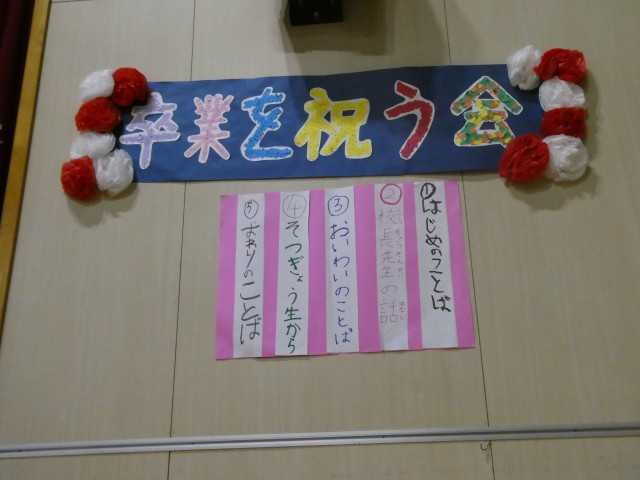 卒業を祝う会
①はじめのことば
②校長先生の話
③おいわいのことば
④そつぎょう生から
⑤おわりのことば